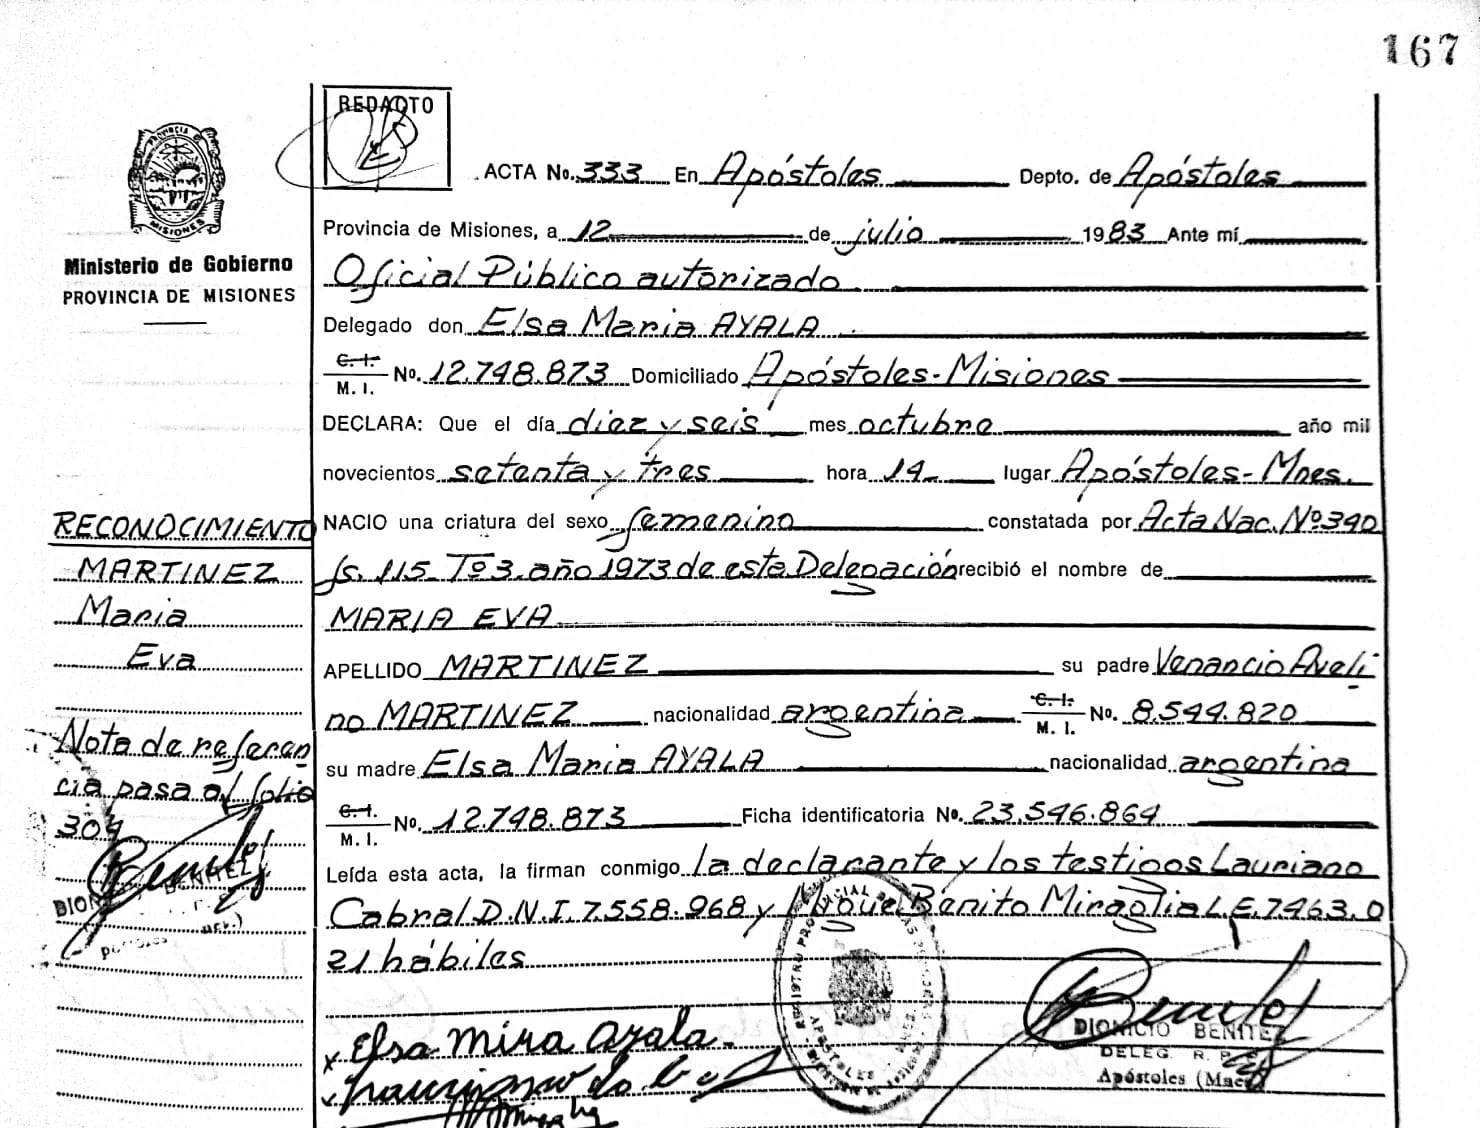 167
REDACTO
PROVINCIA
MISIONES
Ministerio de Gobierno
PROVINCIA DE MISIONES
ACTA No. 333 En Apóstoles Depto. de Apóstoles
Provincia de Misiones, a 12 de julio 1983 Ante mí
Oficial Público autorizado
Delegado don Elsa Maria AYALA
C. I.
M. I. No. 12.748.873 Domiciliado Apóstoles-Misiones
DECLARA: Que el día diez y seis mes octubre año mil
novecientos setenta y tres hora 14 lugar Apóstoles-Mnes.
NACIO una criatura del sexo femenino constatada por Acta Nac. Nº 390
fs. 115 Tº 3 año 1973 de esta Delegación recibió el nombre de
MARIA EVA
APELLIDO MARTINEZ su padre Venancio Aveli
no MARTINEZ nacionalidad argentina C. I.
M. I. No. 8.544.820
su madre Elsa Maria AYALA nacionalidad argentina
C. I.
M. I. No. 12.748.873 Ficha identificatoria No. 23.546.864
Leída esta acta, la firman conmigo la declarante y los testigos Lauriano
Cabral D.N.I. 7.558.968 y Benito Miraglia L.E. 7463.0
21 hábiles
RECONOCIMIENTO
MARTINEZ
Maria
Eva
Nota de referen
cia pasa al folio
304
BENITEZ
Elsa Mira Ayala
APOSTOLES
DIONICIO BENITEZ
DELEG. R. P.
Apóstoles